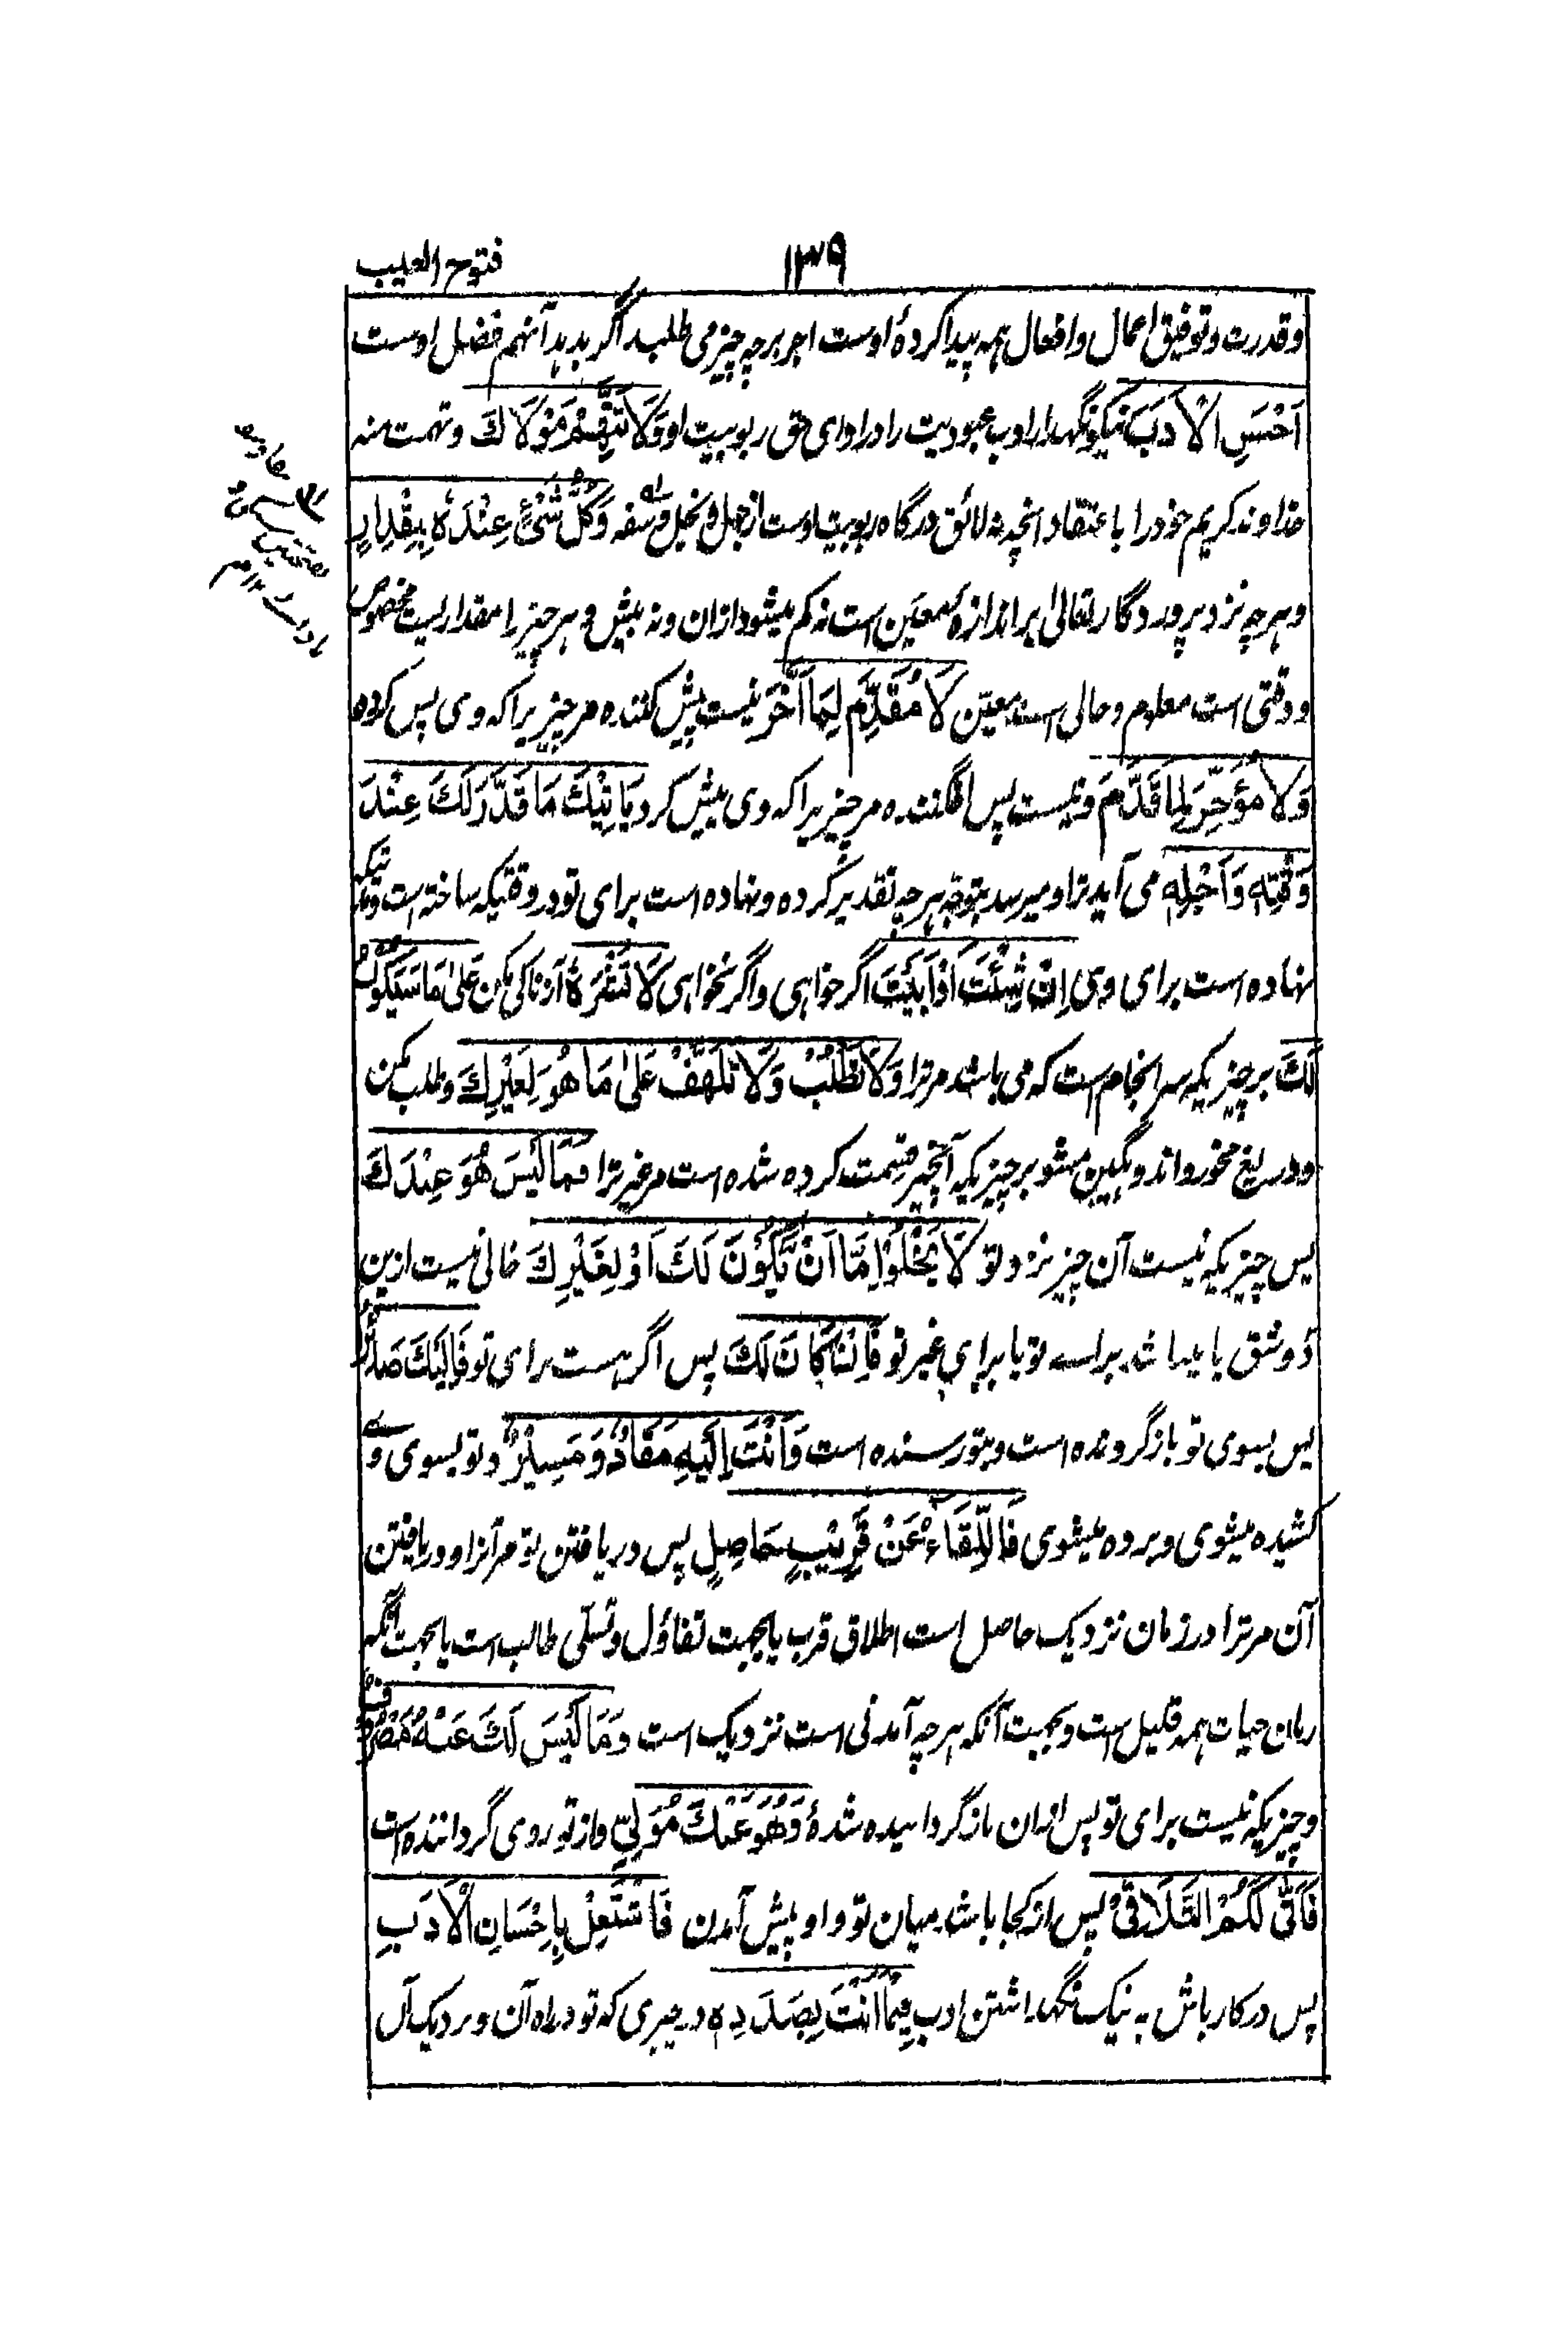 ۱۳۹
فتوح الغیب
و قدرت و توفیق اعمال و افعال همه پیدا کردهٔ اوست اجر برچه چیز می طلبد اگر بدهد آنهم فضل اوست
اَحْسَنِ الْاَدَبَ نیکو نگهدار ادب عبودیت را در ادای حق ربوبیت او وَلَا تَتَّهِمْ مَوْلَاكَ و تهمت منه
خداوند کریم خود را باعتقاد آنچه نه لائق درگاه ربوبیت اوست از جهل و بخل و سفه وَكُلُّ شَيْءٍ عِنْدَهٗ بِمِقْدَارٍ
و هرچه نزد پروردگار تعالیٰ بر اندازهٔ معین است نه کم میشود ازان و نه بیش و هر چیز را مقداریست مخصوص
و وقتی است معلوم و حالی است معین لَا مُقَدِّمَ لِمَا اَخَّرَ نیست پیش کننده مر چیزیرا که وی پس کرده
وَلَا مُؤَخِّرَ لِمَا قَدَّمَ و نیست پس افگننده مر چیزیرا که وی پیش کرد یَاتِیْكَ مَا قَدَّرَ لَكَ عِنْدَ
وَقْتِهٖ وَاَجَلِهٖ می آید ترا و میرسد بتو هرچه تقدیر کرده و نهاده است برای تو در وقتیکه ساخته است و
نهاده است برای وی اِنْ شِئْتَ اَوْ اَبَیْتَ اگر خواهی و اگر نخواهی لَا تَشْرَهْ آزناکی مکن عَلٰی مَا سَیَکُوْنُ
لَكَ بر چیزیکه سرانجام است که می باشد مر ترا وَلَا تَطْلُبْ وَلَا تَلَهَّفْ عَلٰی مَا هُوَ لِغَیْرِكَ و طلب مکن
و دریغ مخور و اندوهگین مشو بر چیزیکه آنچیز قسمت کرده شده است مر غیر ترا فَمَا لَیْسَ هُوَ عِنْدَكَ
پس چیزیکه نیست آن چیز نزد تو لَا یَخْلُوْا اِمَّا اَنْ یَّکُوْنَ لَكَ اَوْ لِغَیْرِكَ خالی نیست ازین
دو شق یا میباشد براے تو یا برای غیر تو فَاِنْ کَانَ لَكَ پس اگر هست برای تو فَاِلَیْكَ صَائِرٌ
پس بسوی تو بازگردنده است و بتو رسنده است وَاَنْتَ اِلَیْهِ مُقَادٌ وَمَسِیْرٌ و تو بسوی وے
کشیده میشوی و برده میشوی فَاللِّقَاءُ عَنْ قَرِیْبٍ حَاصِلٍ پس دریافتن تو مر آنرا و دریافتن
آن مر ترا در زمان نزدیک حاصل است اطلاق قرب یا بجهت تفاؤل و تسلّی طالب است یا بجهت آنکه
زمان حیات همه قلیل است و بجهت آنکه هرچه آمدنی است نزدیک است وَمَا لَیْسَ لَكَ عَنْهُ مَصْرُوْفٌ
و چیزیکه نیست برای تو پس ازان بازگردانیده شدهٔ وَهُوَ عَنْكَ مُوَلٍّی و از تو روی گرداننده است
فَاَنّٰی لَکُمَا التَّلَاقِیْ پس از کجا باشد میان تو و او پیش آمدن فَاشْتَغِلْ بِاِحْسَانِ الْاَدَبِ
پس در کار باش به نیک نگهداشتن ادب فِیْمَا اَنْتَ بِصَدَدِهٖ در چیزی که تو در راه آن و نزدیک آن